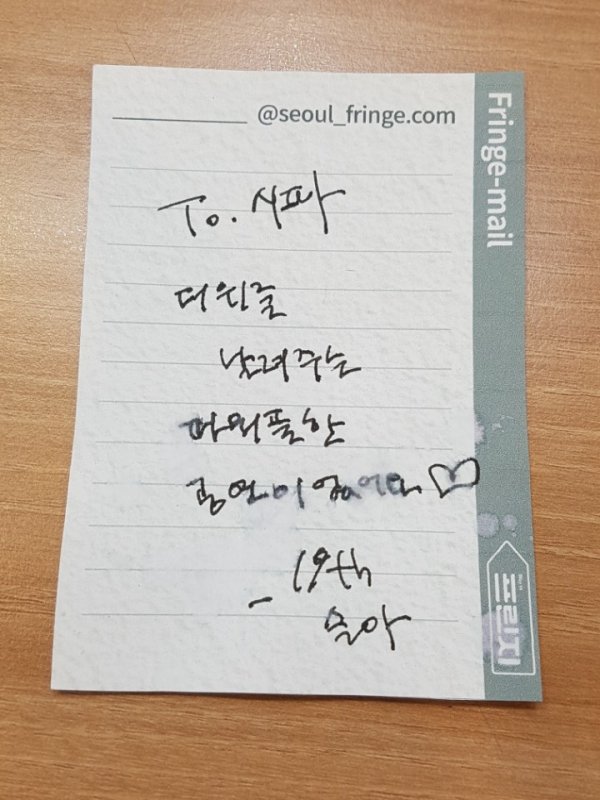 @seoul_fringe.com
Fringe-mail
To. 시파
더위를
날려주는
파워풀한
공연이였어요♡
- 19th
프린지